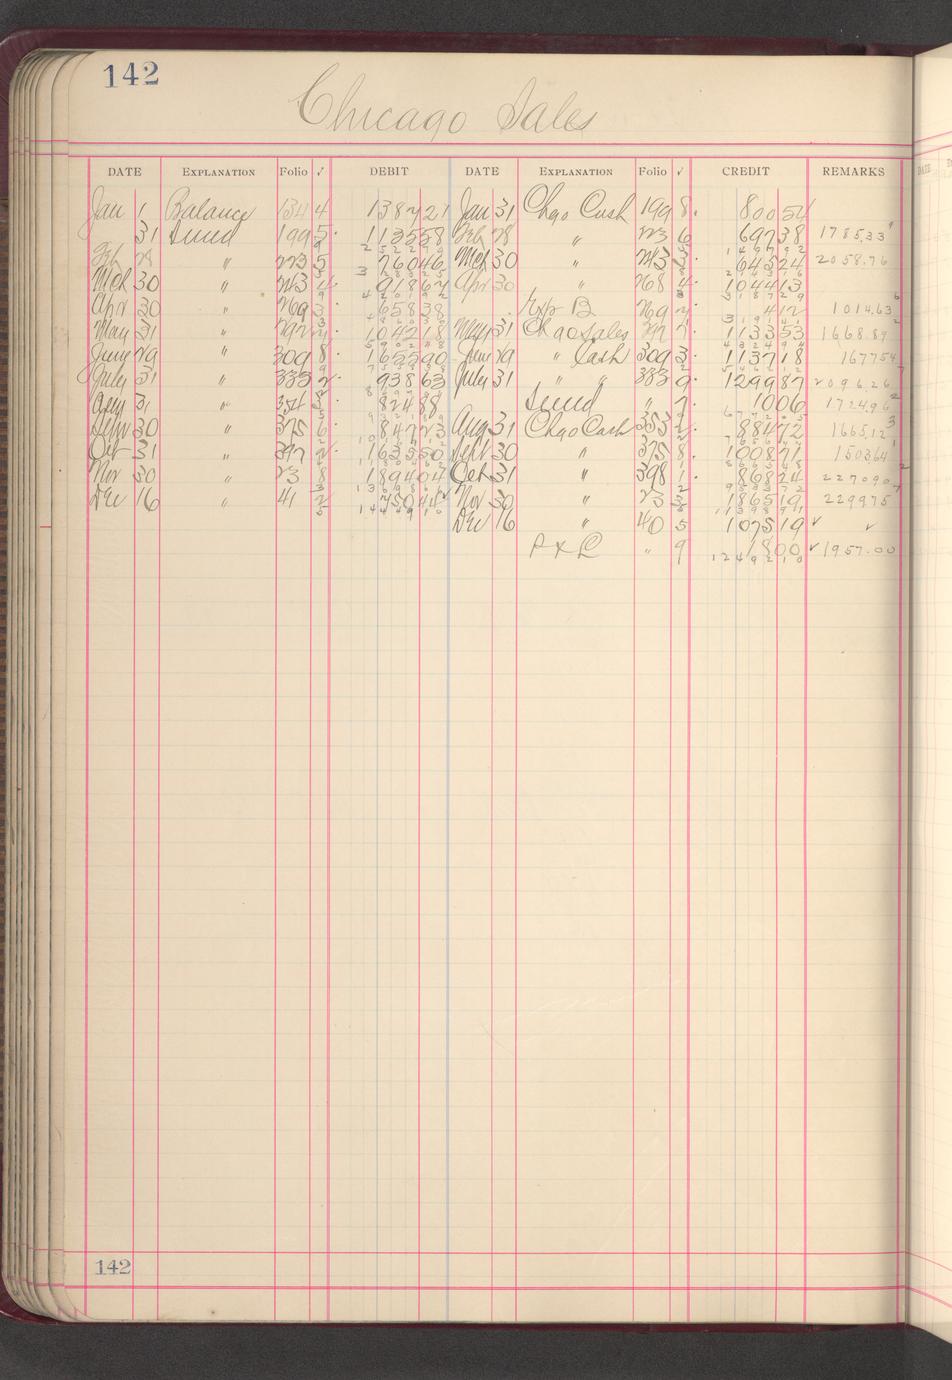 142
Chicago Sales
DATE Explanation Folio √ DEBIT DATE Explanation Folio √ CREDIT REMARKS
Jan 1 Balance 134 4 1387 21 Jan 31 Chgo Cash 199 8. 800 54
31 Sund 199 5. 1135 58 Feb 28 " 223 6 697 38 1785.33
Feb 28 " 223 5 760 46 Mch 30 " 243 645 24 2058.76
Mch 30 " 243 4. 918 67 Apr 30 " 268 4. 1044 13
Apr 30 " 269 3 658 38 Exp B 269 4 12 1014.63
May 31 " 292 1042 18 May 31 Chgo Sales 292 1133 53 1668.89
June 29 " 309 8. 1655 90 June 29 " Cash 309 3. 1137 18 1677 54
July 31 " 333 2. 938 63 July 31 " " 333 9. 1299 87 2096.26
Aug 31 " 354 824 88 Sund " 7. 10 06 1724.96
30 " 375 6. 847 23 Aug 31 Chgo Cash 353 884 72 1665.12
Oct 31 " 397 2. 1635 50 Sept 30 " 375 8. 1008 71 1503 64
Nov 30 " 23 8 1894 04 Oct 31 " 398 1. 868 24 2270 90
Dec 16 " 41 2 750 44 Nov 30 " 23 3 1865 19 2299 75
Dec 16 " 40 5 1075 19 ✓ ✓
P & L " 9 18 00 ✓ 1957.00
14 4 9 9 1 0 12 4 9 2 1 0
142